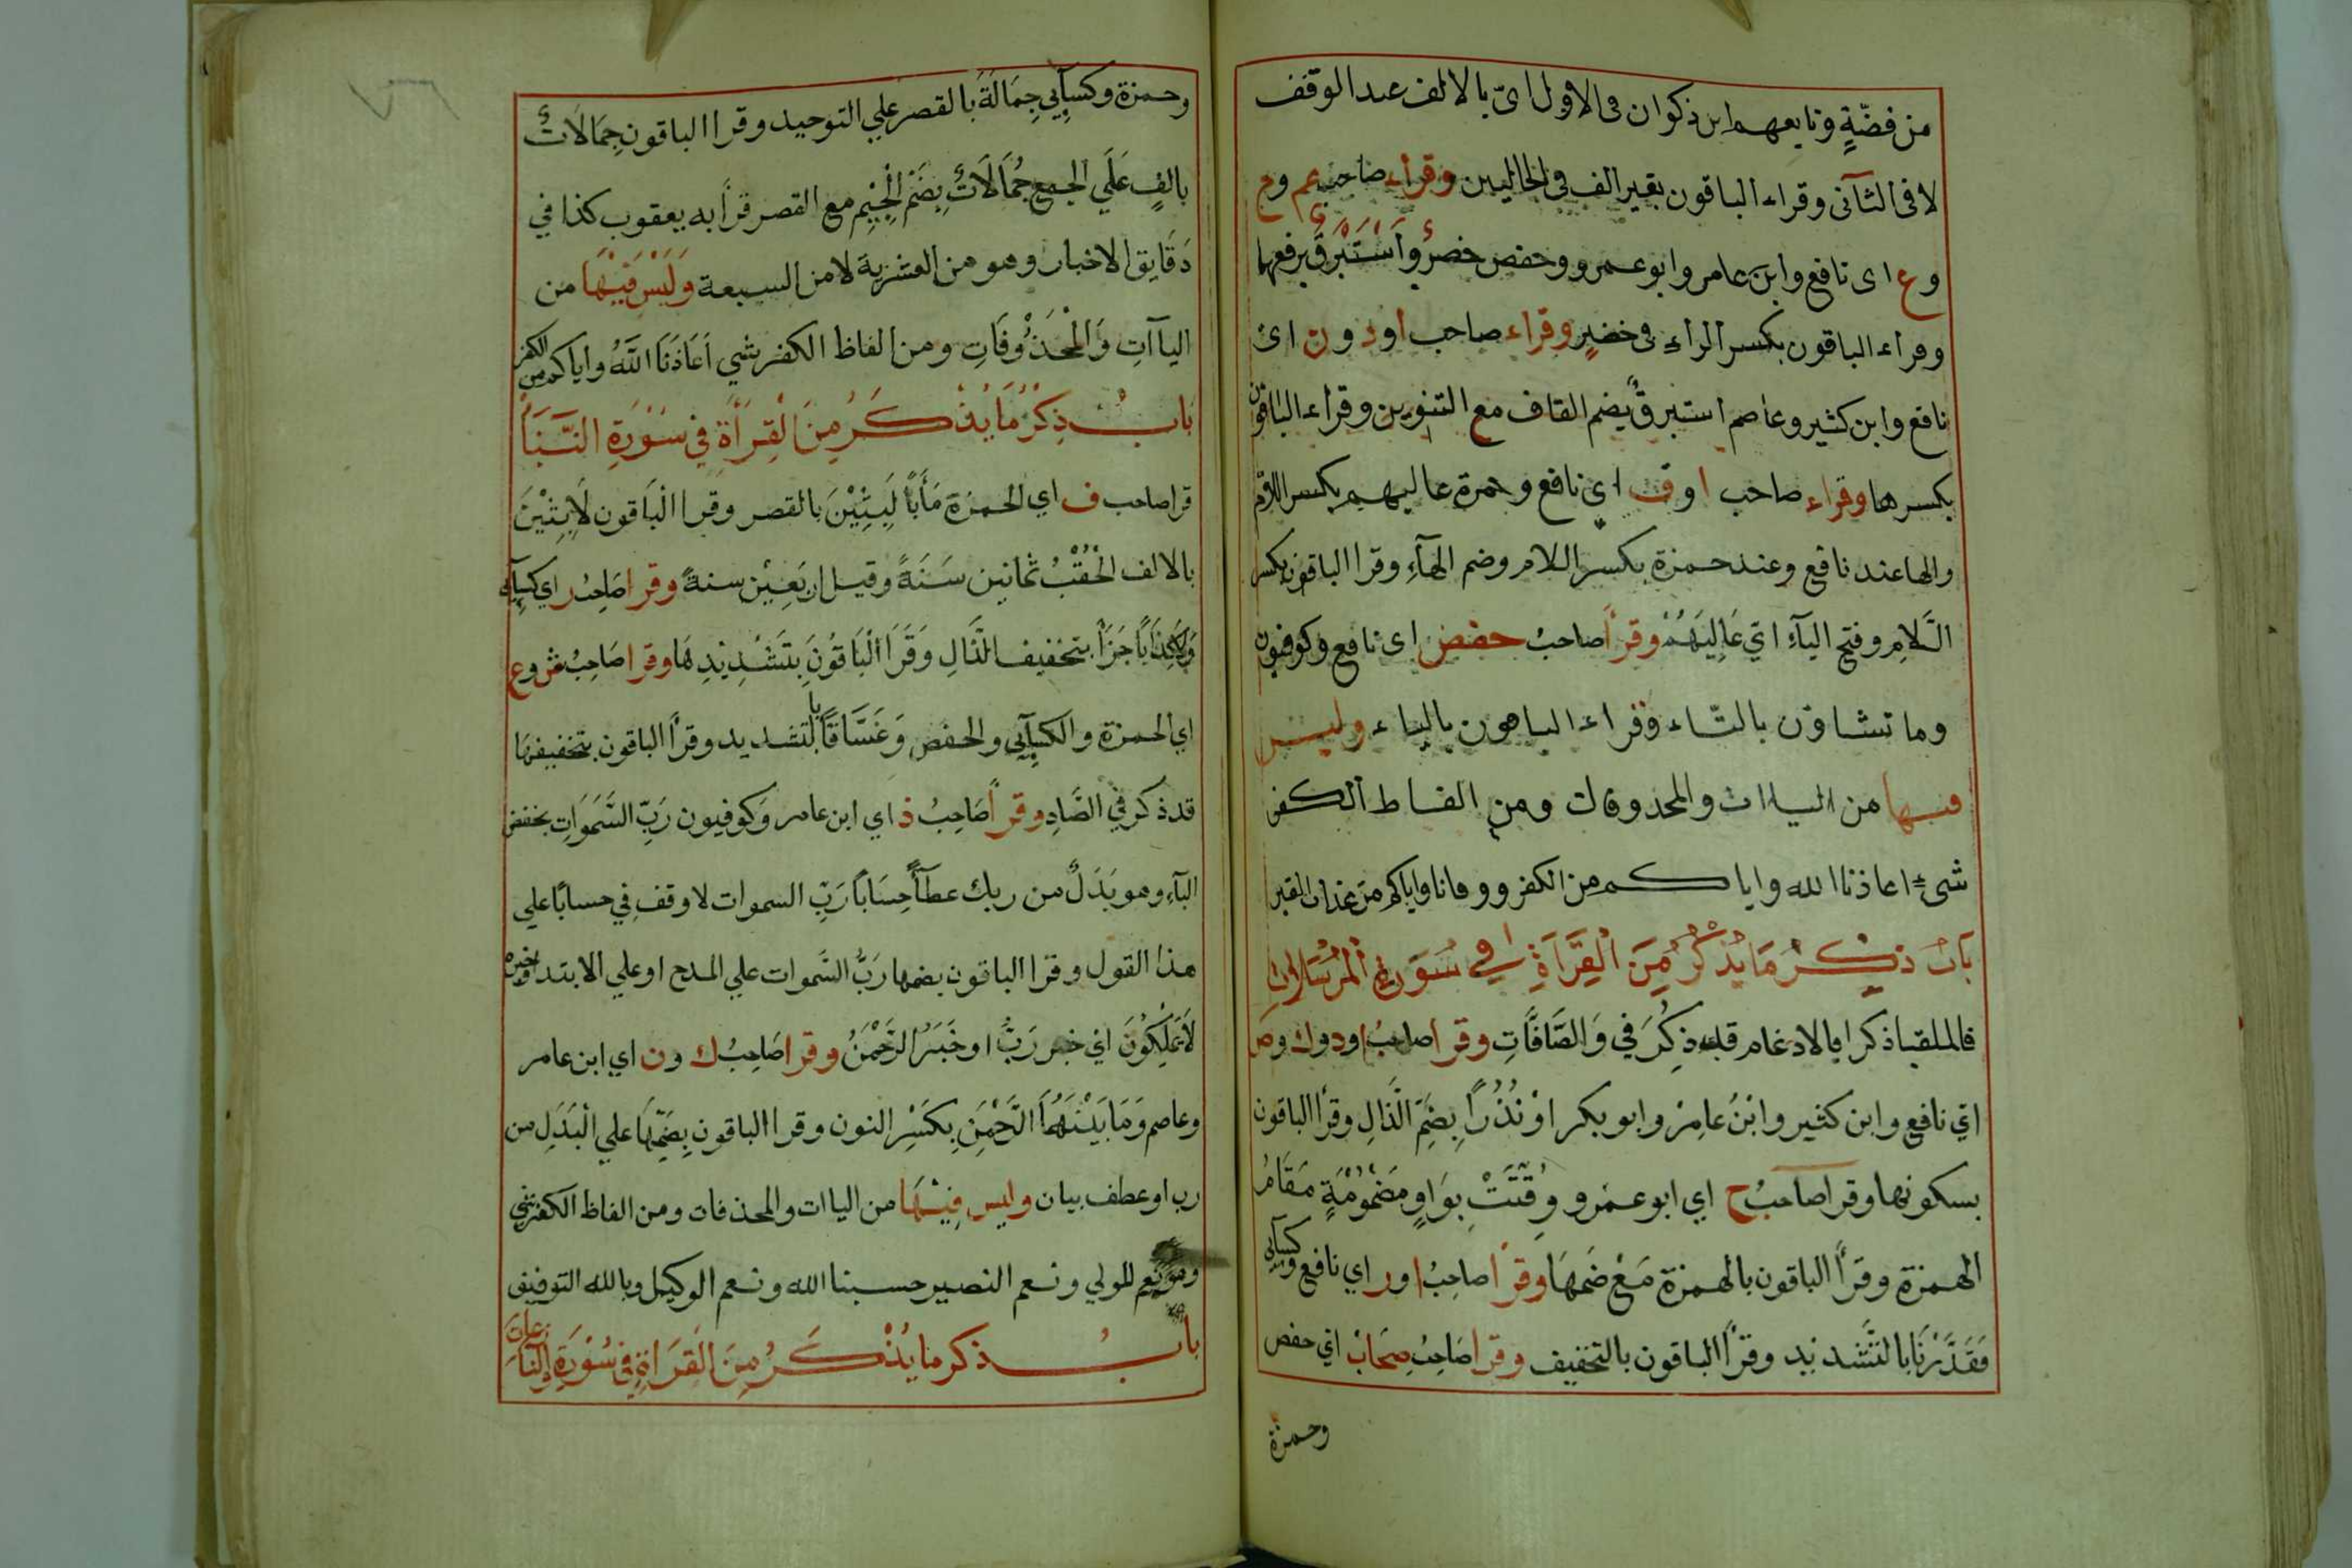 من فضّةٍ وتابعهم ابن ذكوان فى الاول اىّ بالالف عند الوقف
لا فى الثآنى وقراء الباقون بغير الف فى الحاليين وقراء صاحب عم وح
وع اى نافع وابن عامر وابو عمرو وحفص خضرٌ وَاَسْتَبْرَقٌ برفعها
وقراء الباقون بكسر الراء فى خضرٍ وقراء صاحب ا ود ون اى
نافع وابن كثير وعاصم استبرقٌ بضم القاف مع التنوين وقراء الباقون
بكسرها وقراء صاحب ا وف اى نافع وحمزة عاليهم بكسر اللام
والها عند نافع وعند حمزة بكسر اللام وضم الهآءِ وقرا الباقون بكسر
الَّلامِ وفتح اليآءِ اتي عَالِيَهُمْ وقرأ صاحبُ حفض اى نافع وكوفيون
وما تشاؤن بالتّاء وقراء الباهون بالياء وليس
فيها من الياات والمحذوفات ومن الفاط الكفر
شىءٌ اعاذنا الله واياكم من الكفر ووقانا واياكم من عذاب القبر
بَابُ ذِكْرُ مَا يُذْكَرُ مِنَ الْقِرَآةِ فِي سُورَةِ الْمُرْسَلَاتِ
فالملقيا ذكرا بالادغام قد ذِكُرَ في وَالصَّافَّاتِ وقرأ صاحبُ ا ود وك وص
اي نافع وابن كثير وابْنُ عامِرْ وابو بكر اوْ نُذُرًا بِضَمِّ الَّذالِ وقرأ الباقون
بسكونها وقرا صاحبُ ح اي ابو عمرو وُقِّتَتْ بوَاوٍ مَضْمُوْمَةٍ مَقَامُ
الهمزة وقرأ الباقون بالهمزة مَعْ ضَمهَا وقرأ صاحِبُ ا ور اي نافع وكسآئي
فَقَدَّرْنَا بالتَّشديد وقرأ الباقون بالتخفيف وقرا صَاحِبُ صِحَابْ اي حفص
وحمزة
وحمزة وكسآيي جِمَالَةٌ بالقصر علي التوحيد وقرا الباقون جِمَالَاتٌ
بالفٍ عَلَي الجمع جُمَالَاتٌ بِضَمِّ الْجِيْمِ مع القصر قرأ به يعقوب كذا في
دَقَايق الاخبار وهو من العشرية لا من السبعة وَلَيْسَ فِيْهَا من
اليآآتِ وَالْمَحْذُوْفَاتِ ومن الفاظ الكفر شي اَعَاذَنَا اللَّهُ واياكم من الكفر
بَابُ ذِكْرُ مَا يُذْكَرُ مِنَ الْقِرَأَةِ فِي سُوْرَةِ النَّبَأ
قرا صاحب ف اي الحمزة مَأَباً لَبِثِيْنَ بالقصر وقرا الْبَاقون لَابِثِيْنَ
بالالف الْحُقْبُ ثمانين سَنَةً وقيل اربَعِيْن سنةً وقرا صَاحِبُ ر اي كسآي
وَلَاكِذَابًا جَزَأً بتخفيف الذَّالِ وَقَرَا الْبَاقُونَ بِتَشْدِيْدِهَا وقرا صَاحِبُ ش وع
اي الحمزة والكسآيي والحفص وَغَسَّاقًا بالتشديد وقرأ الباقون بتخفيفها
قد ذكر في الصَّادِ وقرأ صَاحِبُ ذ اي ابن عامر وَكوفيون رَبِّ السَّمَوَاتِ بخفض
البآءِ وهو بَدَلٌ من ربك عطآءً حِسَاباً رَبِّ السموات لا وقف في حساباً علي
هذا القول وقرا الباقون بضمها رَبُّ السَّموات علي المدح او علي الابتدا وخبره
لَايَمْلِكُوْنَ اي خبر رَبُّ او خَبَرُ الرَّحْمَنُ وقرا صَاحِبُ ك ون اي ابن عامر
وعاصم وَمَا بَيْنَهُمَا الرَّحْمَنِ بِكَسْرِ النون وقرا الباقون بِضَمِّهَا علي الْبَدَلِ من
رب او عطف بيان وليس فِيْهَا من الياات والمحذفات ومن الفاظ الكفر شي
وهو نعم المولي ونعم النصير حسبنا الله ونعم الوكيل وبالله التوفيق
بابُ ذكر ما يُذْكَرُ مِنَ الْقِرَاةِ فِي سُوْرَةِ وَالنَّازِعَاتِ